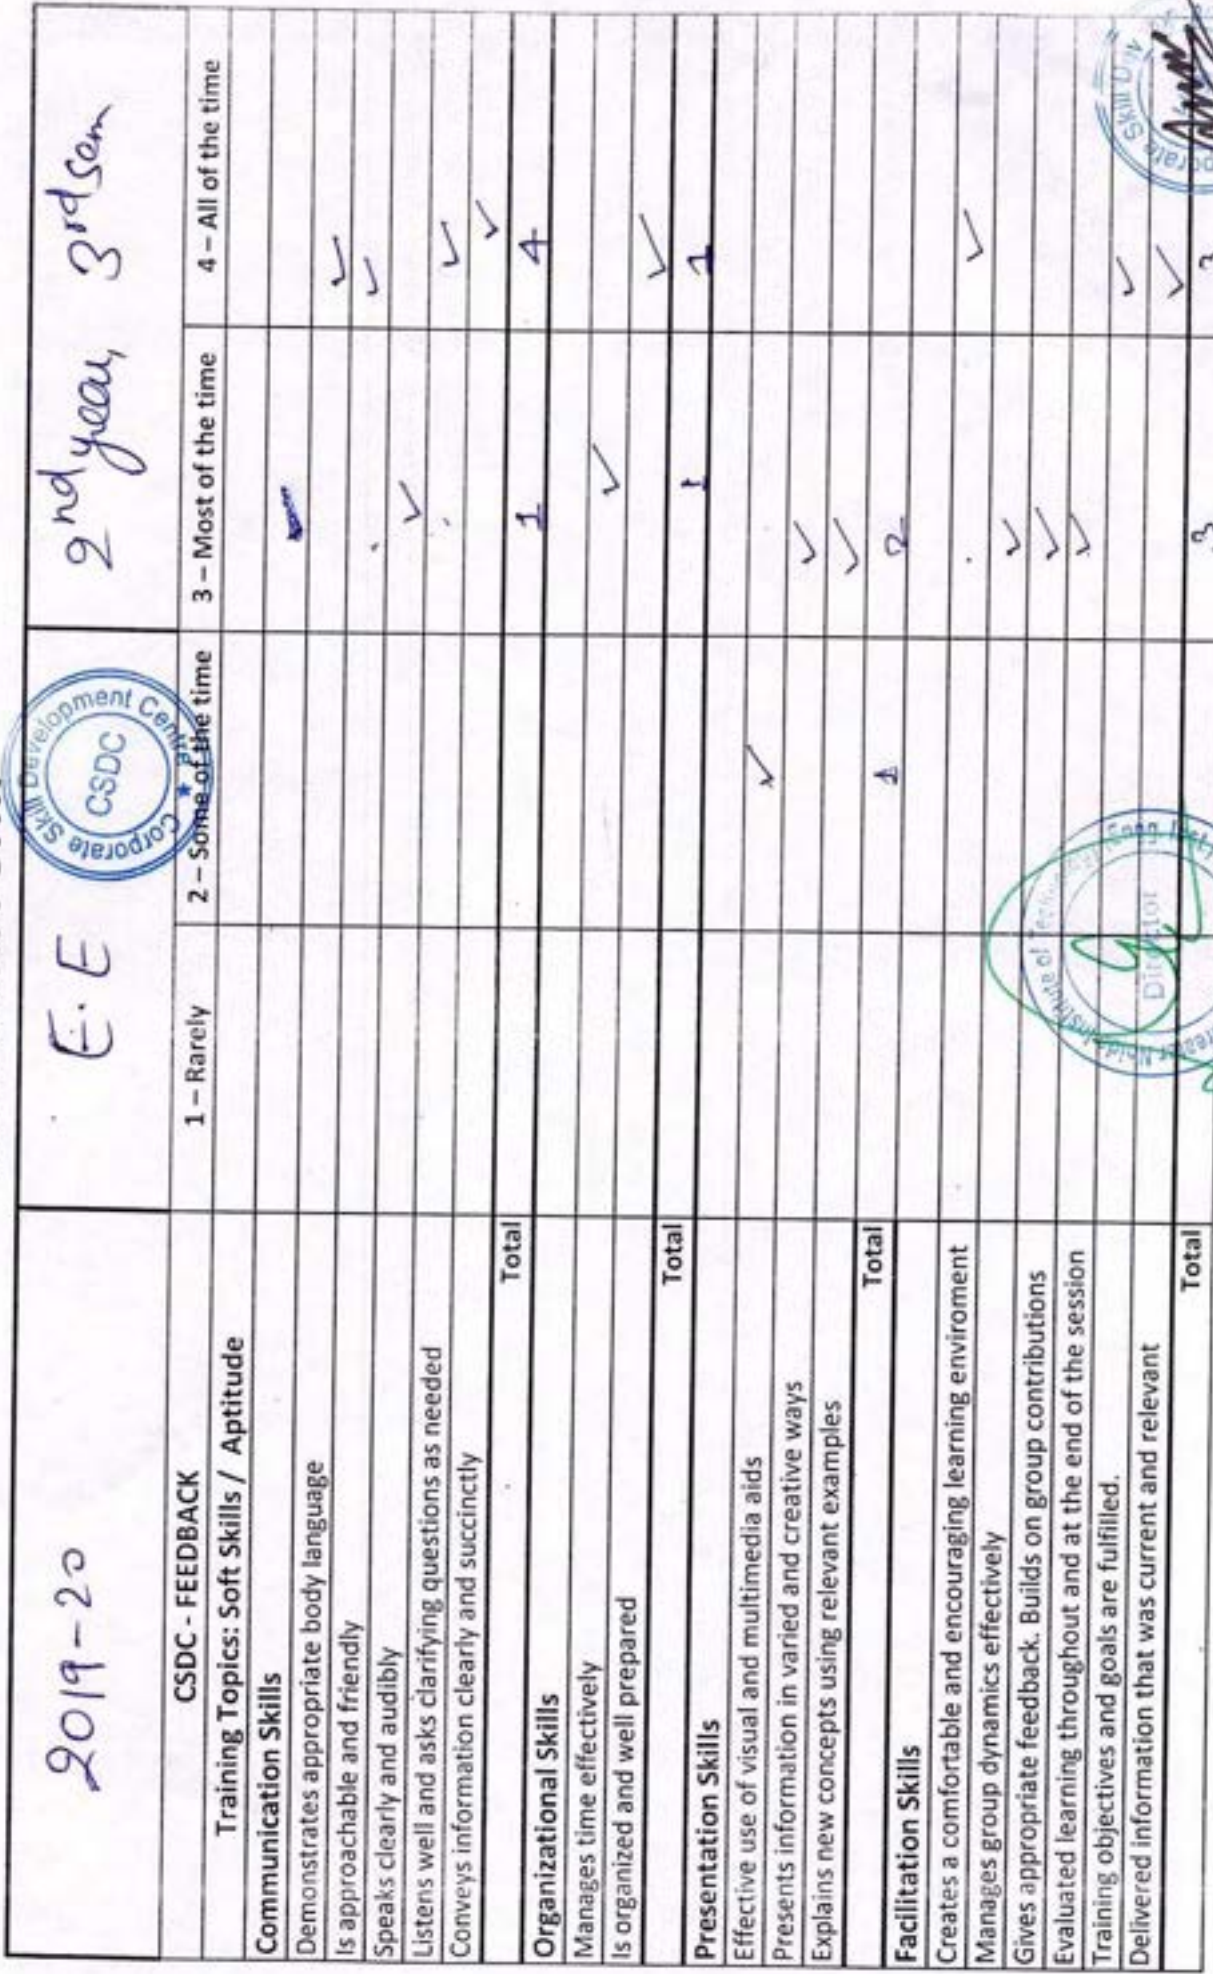 2019-20 E.E 2nd year, 3rd sem
Corporate Skill Development Centre
CSDC
CSDC - FEEDBACK 1 – Rarely 2 – Some of the time 3 – Most of the time 4 – All of the time
Training Topics: Soft Skills / Aptitude
Communication Skills
Demonstrates appropriate body language
Is approachable and friendly ✓
Speaks clearly and audibly ✓
Listens well and asks clarifying questions as needed ✓
Conveys information clearly and succinctly ✓
✓
Total 1 4
Organizational Skills
Manages time effectively ✓
Is organized and well prepared ✓
Total 1 1
Presentation Skills
Effective use of visual and multimedia aids ✓
Presents information in varied and creative ways ✓
Explains new concepts using relevant examples ✓
Total 1 2
Facilitation Skills
Creates a comfortable and encouraging learning enviroment ✓
Manages group dynamics effectively ✓
Gives appropriate feedback. Builds on group contributions ✓
Evaluated learning throughout and at the end of the session ✓
Training objectives and goals are fulfilled. ✓
Delivered information that was current and relevant ✓
Total 3 3
Institute of
Director
Corporate Skill